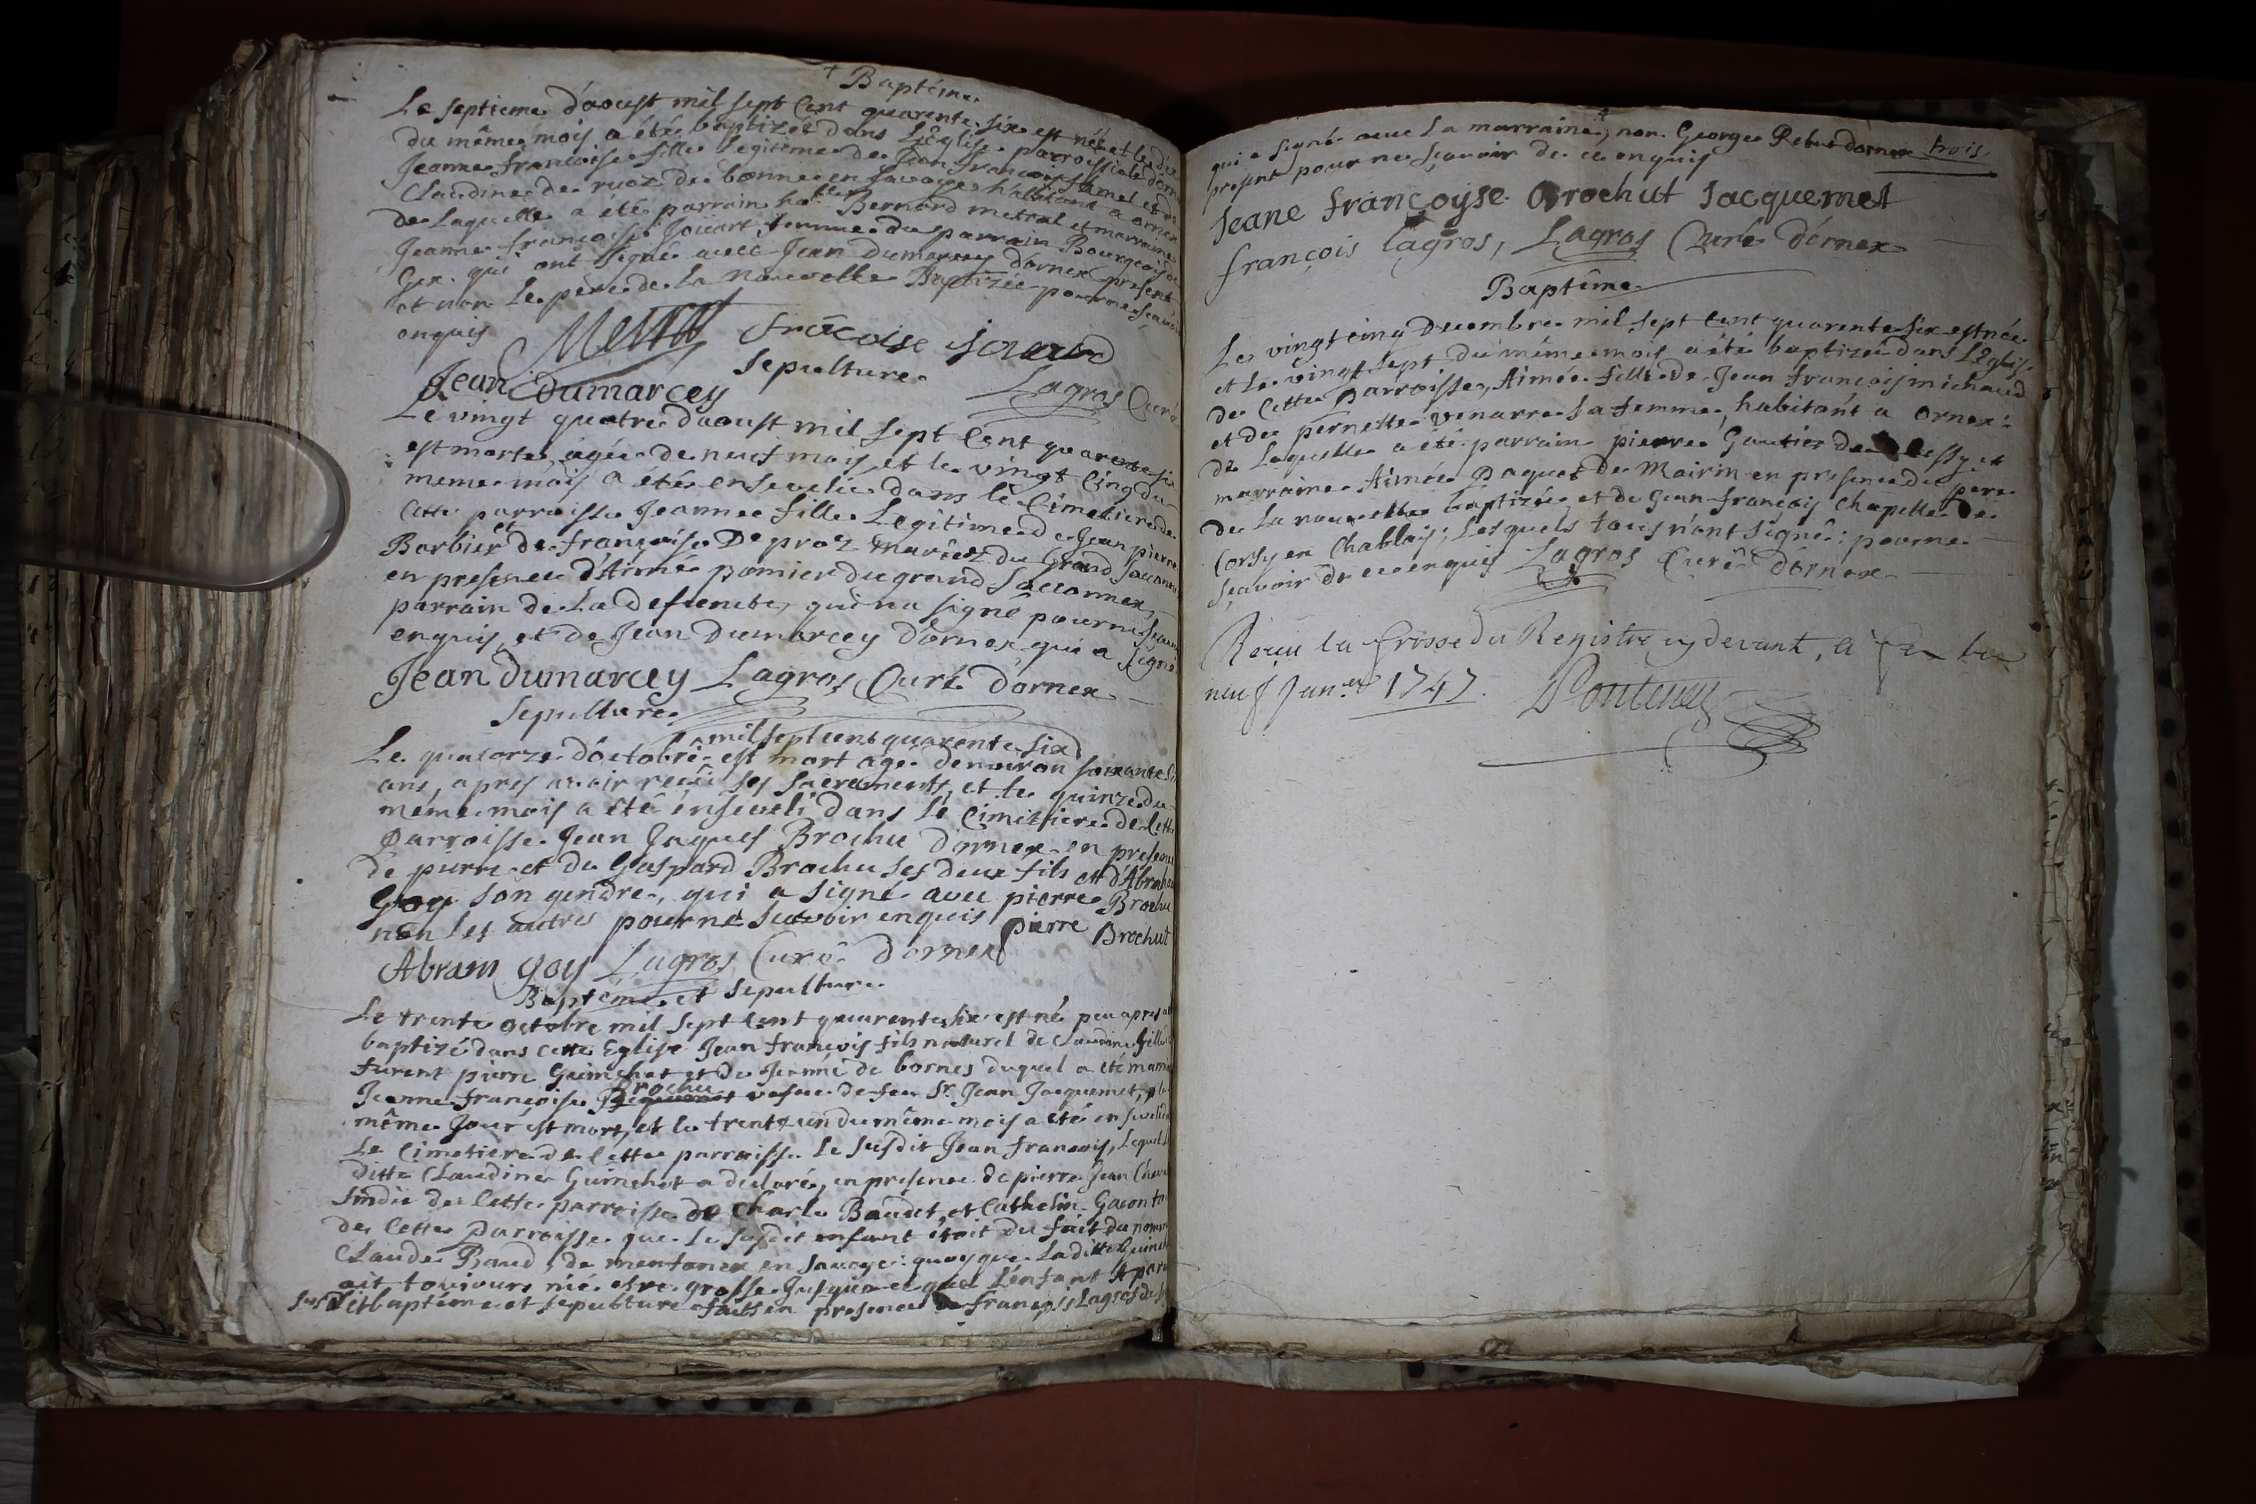 Baptéme
Le septieme d'aoust mil sept Cent quarente six est née et le dix
du même mois a été baptizée dans L'Eglise parroissiale d'orn
Jeanne francoise fille legitime de Jean francois et de
Claudine de ruoz de bonne en Savoye habitant a ornex
de Laquelle a été parrain Bernard metral et marraine
Jeanne francoise Jouart femme du parrain Bourgeois de
Gex qui ont signé avec Jean Dumarcey d'ornex present
et non Le pere de La Nouvelle Baptizée pour ne sçavoir
enquis
Metral francoise
Sepulture
Jean Dumarcey Lagros Curé
Le vingt quatre d'aoust mil sept Cent quarente six
est morte agée de neuf mois et le vingt Cinq du
meme mois a été ensevelie dans le Cimetiere de
Cette parroisse Jeanne fille Legitime de Jean pierre
Barbier et de françoise Deproz mariez du Grand Saconnex
en presence d'Aimé pomier du grand Saconnex
parrain de La Defuncte, qui n'a signé pour ne sçavoir
enquis, et de Jean Dumarcey d'ornex qui a signé
Jean Dumarcey Lagros Curé d'ornex
Sepulture
mil sept cent quarente six
Le quatorze d'octobre est mort agé d'environ soixante
ans, apres avoir recû ses sacrements, et le quinze du
meme mois a été enseveli dans le Cimitiere de Cette
Parroisse Jean Jaques Brochu d'ornex en presence
de pierre et de Gaspard Brochu ses deux fils et d'Abraham
Goy son gendre, qui a signé avec pierre Brochu
non les autres pour ne scavoir enquis pierre Brochut
Abram Goy Lagros Curé d'ornex
Baptéme et Sepulture
Le trente octobre mil sept Cent quarente six est né peu apres
baptizé dans cette Eglise Jean francois fils naturel de Claudine fille
furent pierre Guinchot et de Jeanne de bornes duquel a été marraine
Brochu
Jeanne françoise vefve de feu Sr. Jean Jacquemet,
même Jour est mort, et le trente un du même mois a été enseveli
Le Cimetiere de Cette parroisse Le Susdit Jean francois, Lequel
ditte Claudine Guinchot a declaré, en presence de pierre Jean
Sindic de Cette parroisse de Charle Baudet, et Cathelin Gacon
de Cette Parroisse que Le susdit enfant étoit du fait du
Claude Baud, de mentonex en Savoye: quoyque Laditte Guinchot
ait toujours nié etre grosse Jusqu'a ce que L'enfant
susdit baptéme et sepulture faits en presence de françois Lagros
qui a signé avec La marraine, non George Rebut d'ornex trois
present pour ne sçavoir de ce enquis
Jeane françoyse Brochut Jacquemet
françois Lagros, Lagros Curé d'ornex
Baptême
Le vingt cinq Decembre mil sept Cent quarente six est née
et Le vingt sept du même mois a été baptizée dans L'Eglise
de Cette Parroisse, Aimée fille de Jean francois michaud
et de pernette venarre sa femme, habitant a ornex:
de Laquelle a été parrain pierre Gautier de et
marraine Aimée Paquet de Mairin en presence du pere
de La nouvelle baptizée et de Jean françois Chapelle de
Corsy en Chablais; Lesquels tous n'ont signé: pour ne
sçavoir de ce enquis Lagros Curé d'ornex
Reçu la Grosse du Registre cy devant, a Gex Le
neuf Janer 1747.